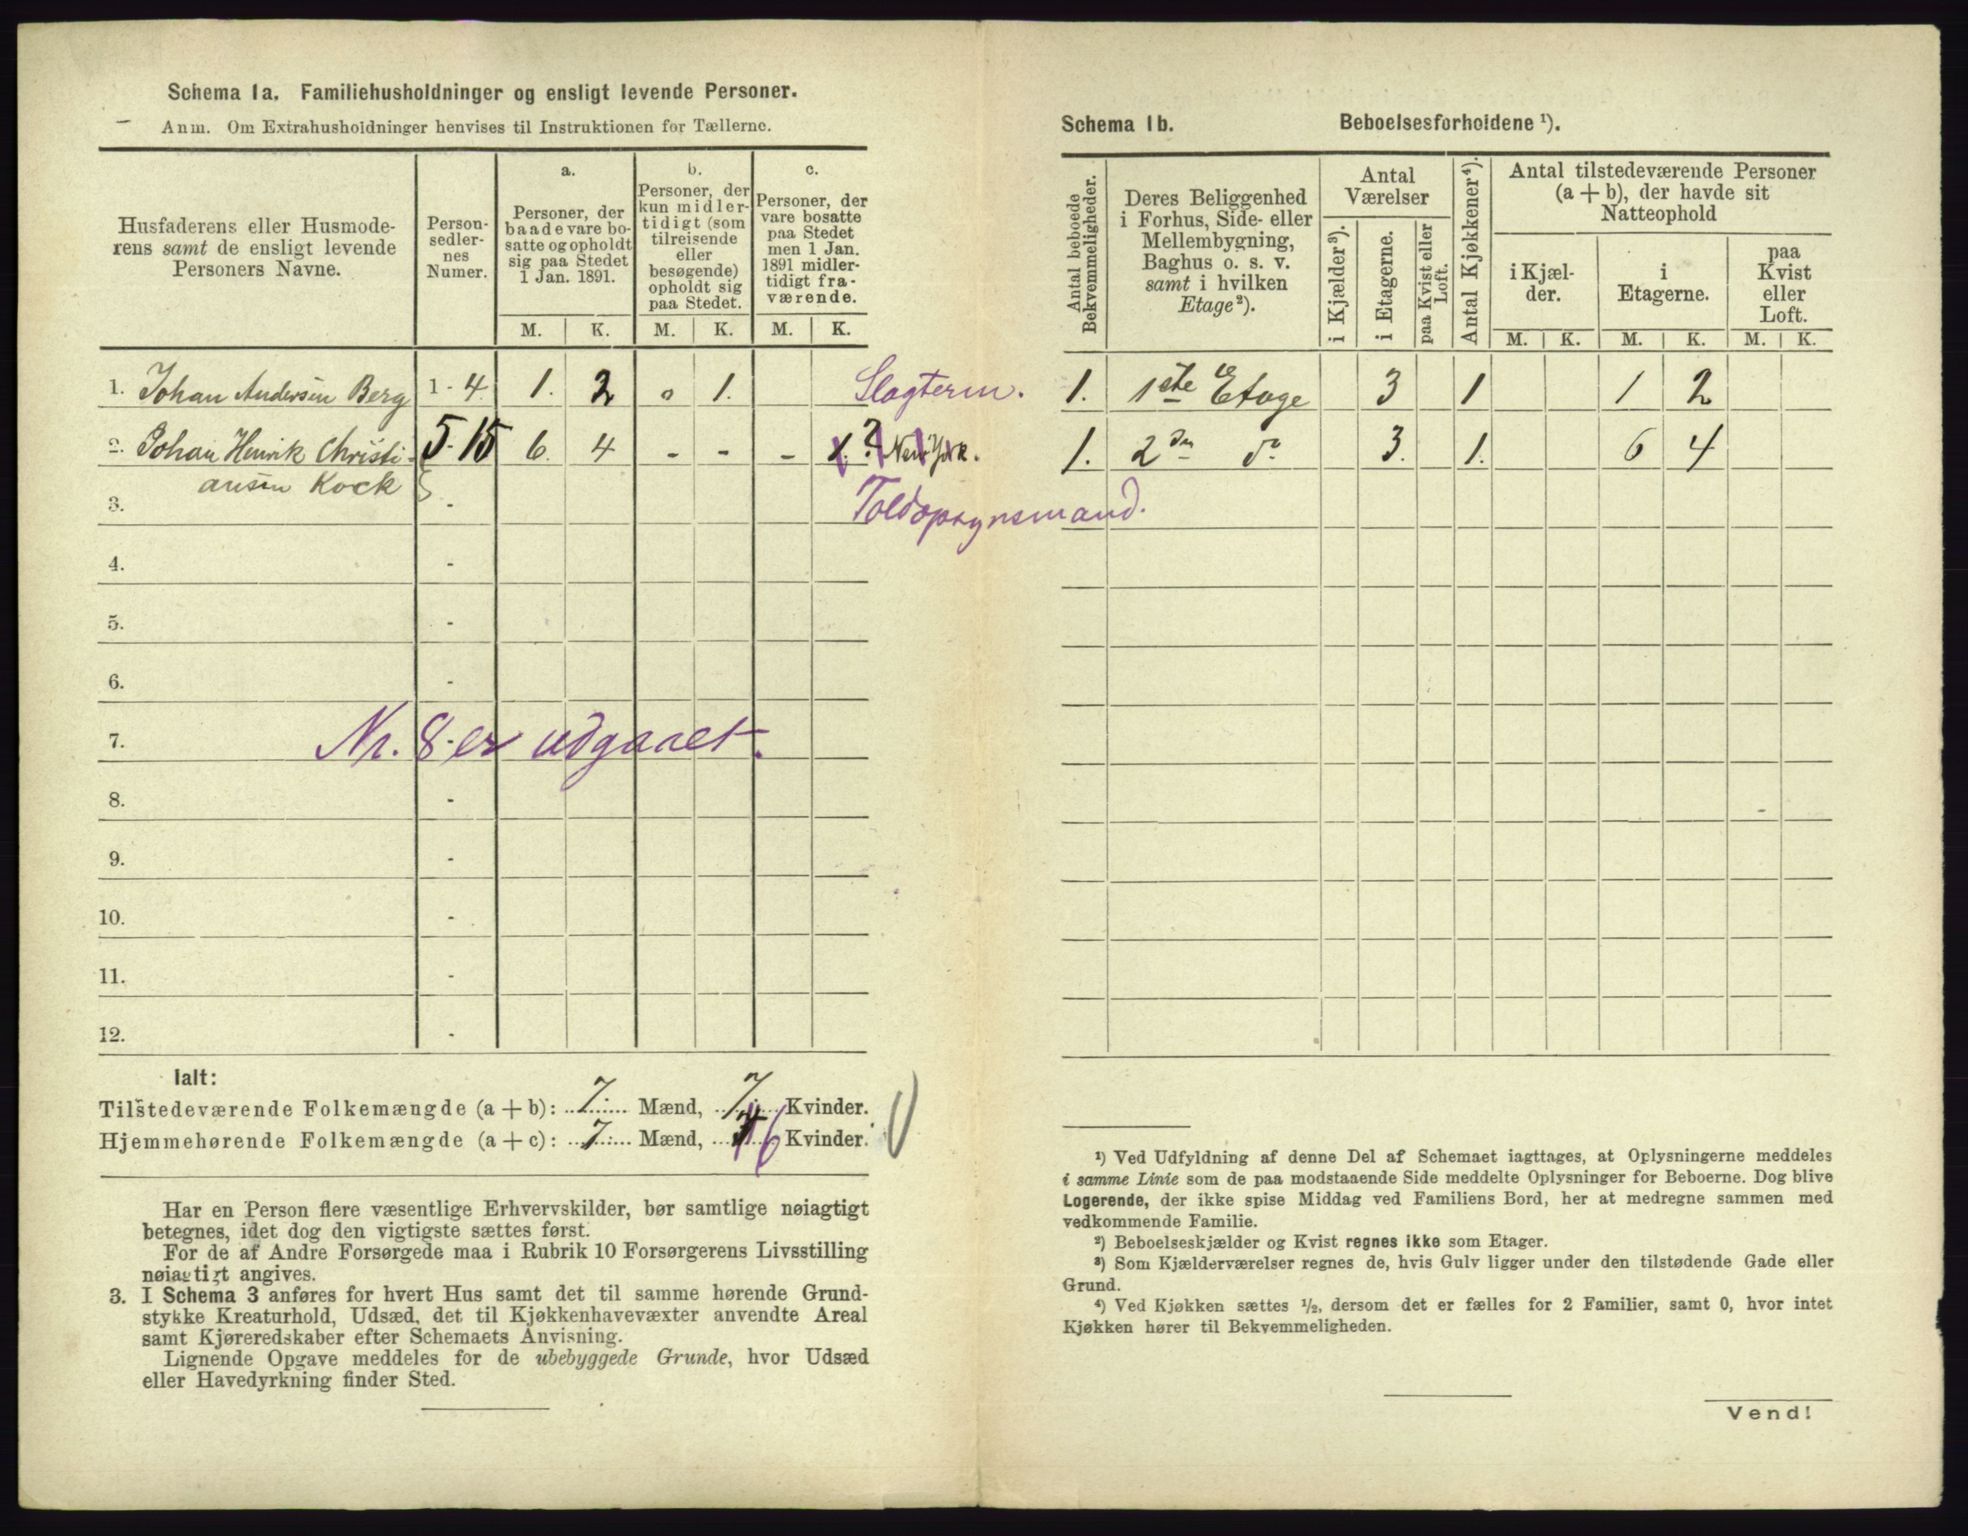 Schema 1a. Familiehusholdninger og ensligt levende Personer.
Anm. Om Extrahusholdninger henvises til Instruktionen for Tællerne.
Husfaderens eller Husmode-
rens samt de ensligt levende
Personers Navne.
Person-
sedler-
nes
Numer.
a.
Personer, der
baade vare bo-
satte og opholdt
sig paa Stedet
1 Jan. 1891.
b.
Personer, der
kun midler-
tidigt (som
tilreisende
eller
besøgende)
opholdt sig
paa Stedet.
c.
Personer, der
vare bosatte
paa Stedet
men 1 Jan.
1891 midler-
tidigt fra-
værende.
M. K. M. K. M. K.
1. Johan Andersen Berg 1 - 4 1. 2 0 1. Slagterm.
2. Johan Henrik Christi- 5-15 6. 4 - - - 1. ? New York.
ansen Kock
3. - Toldopsynsmand.
4. -
5. -
6. -
7. Nr. 8 er udgaaet.
8. -
9. -
10. -
11. -
12. -
Ialt:
Tilstedeværende Folkemængde (a + b): 7. Mænd, 7. Kvinder.
Hjemmehørende Folkemængde (a + c): 7. Mænd, 6 Kvinder.
Har en Person flere væsentlige Erhvervskilder, bør samtlige nøiagtigt
betegnes, idet dog den vigtigste sættes først.
For de af Andre Forsørgede maa i Rubrik 10 Forsørgerens Livsstilling
nøiagtigt angives.
3. I Schema 3 anføres for hvert Hus samt det til samme hørende Grund-
stykke Kreaturhold, Udsæd, det til Kjøkkenhavevæxter anvendte Areal
samt Kjøreredskaber efter Schemaets Anvisning.
Lignende Opgave meddeles for de ubebyggede Grunde, hvor Udsæd
eller Havedyrkning finder Sted.
Schema 1b. Beboelsesforholdene ¹).
Antal beboede
Bekvemmeligheder.
Deres Beliggenhed
i Forhus, Side- eller
Mellembygning,
Baghus o. s. v.
samt i hvilken
Etage²).
Antal
Værelser
i Kjælder³).
i Etagerne.
paa Kvist eller
Loft.
Antal Kjøkkener⁴).
Antal tilstedeværende Personer
(a + b), der havde sit
Natteophold
i Kjæl-
der.
i
Etagerne.
paa
Kvist
eller
Loft.
M. K. M. K. M. K.
1. 1ste Etage 3 1 1 2
1. 2den do 3. 1. 6 4
¹) Ved Udfyldning af denne Del af Schemaet iagttages, at Oplysningerne meddeles
i samme Linie som de paa modstaaende Side meddelte Oplysninger for Beboerne. Dog blive
Logerende, der ikke spise Middag ved Familiens Bord, her at medregne sammen med
vedkommende Familie.
²) Beboelseskjælder og Kvist regnes ikke som Etager.
³) Som Kjælderværelser regnes de, hvis Gulv ligger under den tilstødende Gade eller
Grund.
⁴) Ved Kjøkken sættes ½, dersom det er fælles for 2 Familier, samt 0, hvor intet
Kjøkken hører til Bekvemmeligheden.
Vend!